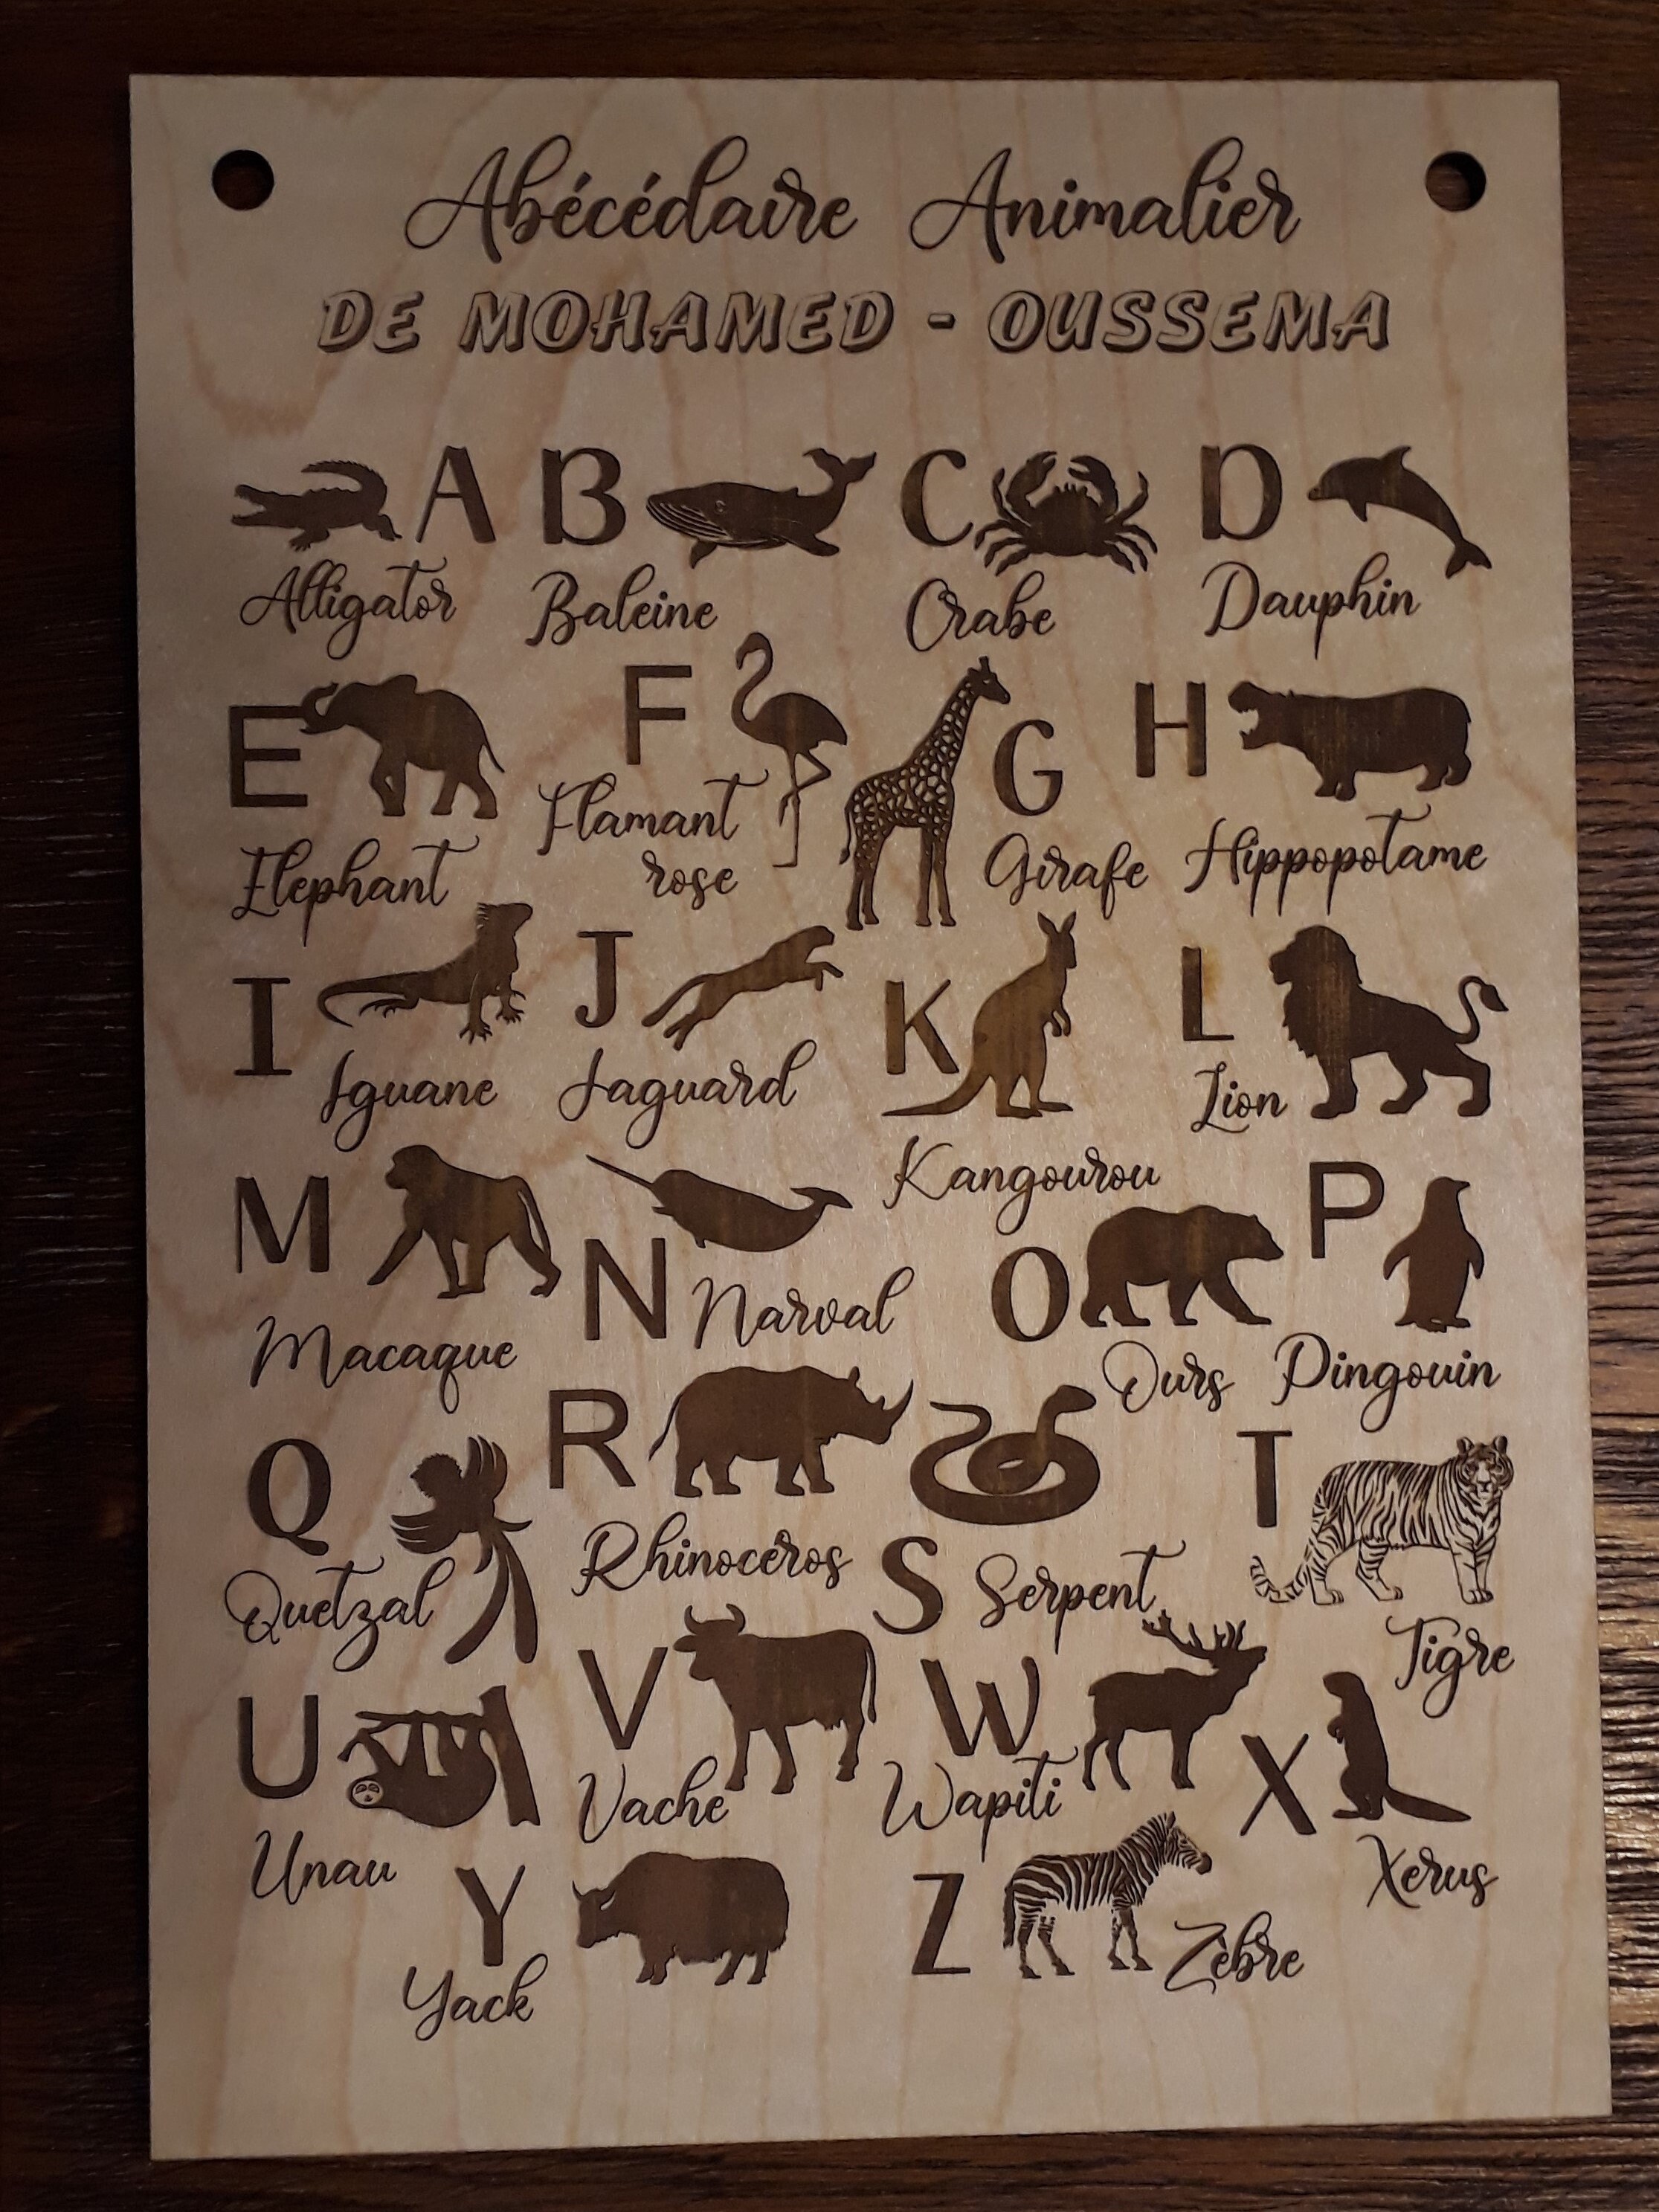 Abécédaire Animalier
DE MOHAMED - OUSSEMA
A B C D
Alligator Baleine Crabe Dauphin
E F G H
Elephant Flamant rose Girafe Hippopotame
I J K L
Iguane Jaguard Kangourou Lion
M N O P
Macaque Narval Ours Pingouin
Q R S T
Quetzal Rhinocéros Serpent Tigre
U V W X
Unau Vache Wapiti Xerus
Y Z
Yack Zèbre